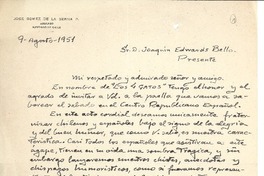 JOSE GOMEZ DE LA SERNA F.
ABOGADO
9-Agosto-1951
Sr. D. Joaquin Edwards Bello
Presente
Mi respetado y admirado señor y amigo.
En nombre de "Los 4 GATOS" tengo el honor y el
agrado de invitar a Vd. a la paella que vamos a sa-
borear el sábado en el Centro Republicano Español.
En este acto cordial deseamos unicamente frater-
nizar chilenos y españoles bajo el signo de la alegria y
del buen humor, que como Vd. sabe, es nuestra caracte-
ristica. Casi todos los españoles que asistimos a este
ágape, tienen en su vida una honda tragica, y sin
embargo lanzaremos nuestros chistes, anécdotas y
chispazos humoristicos, como si fueramos represen-